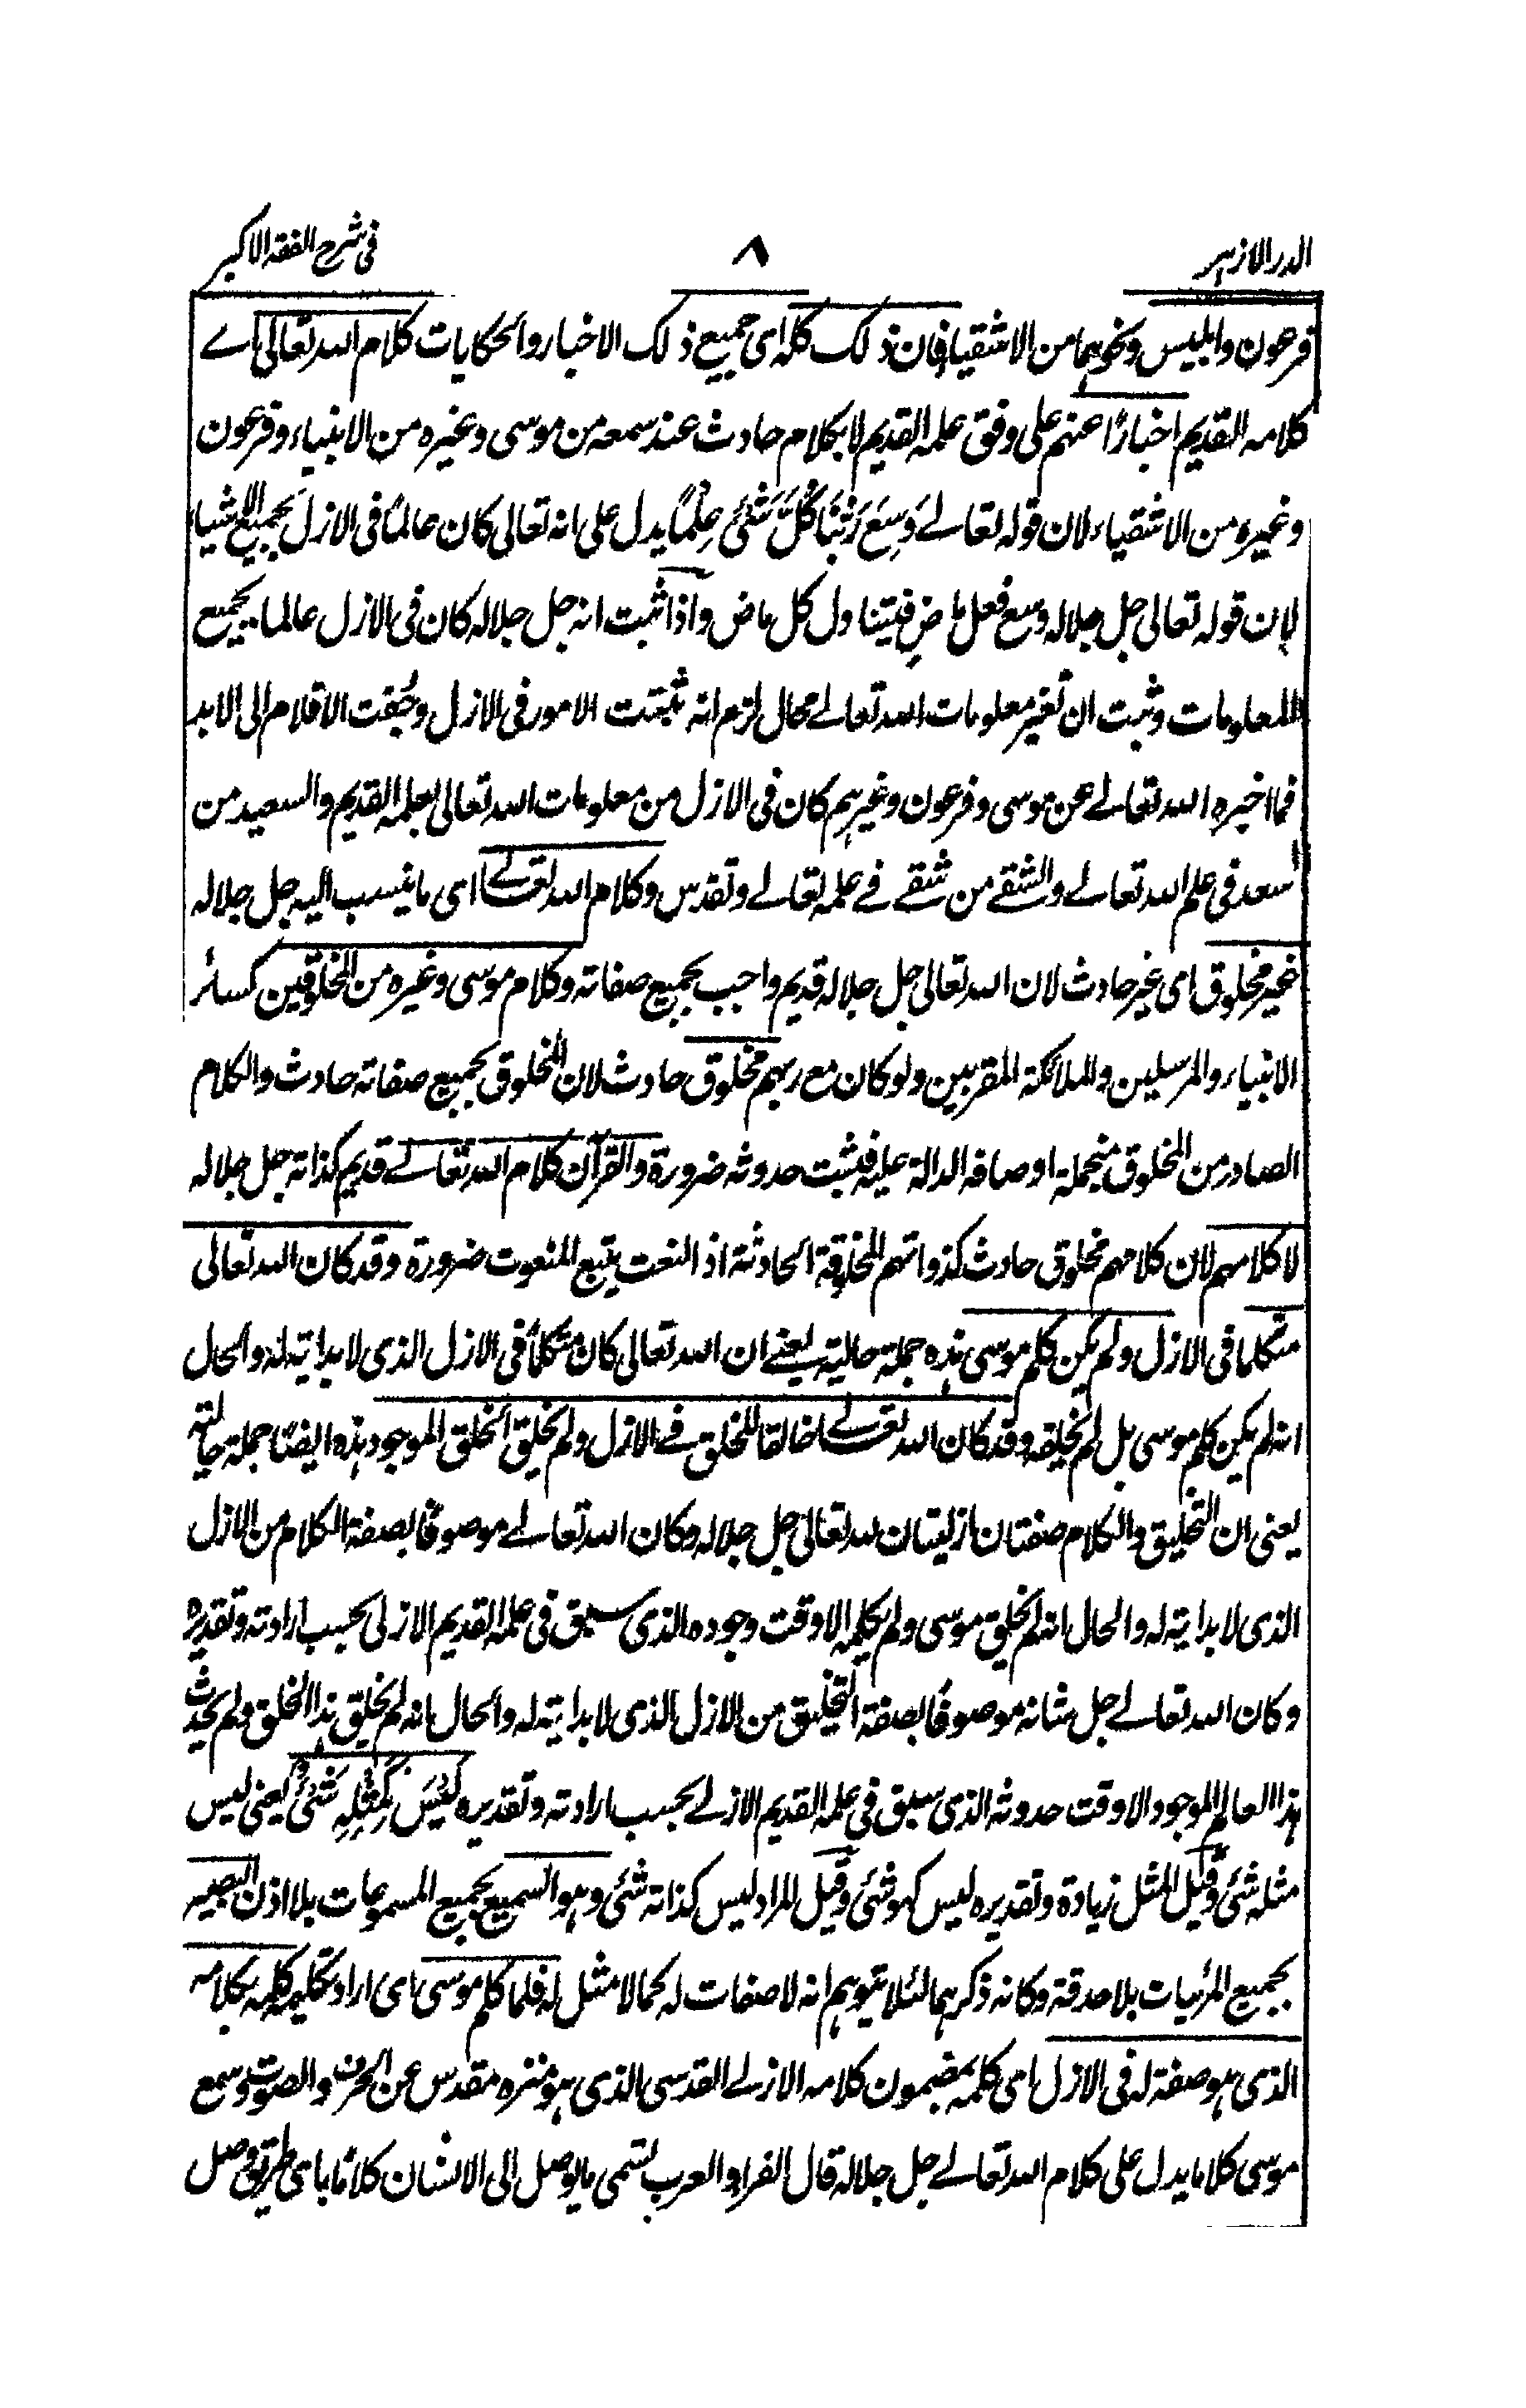 الدر الازهر ٨ فى شرح الفقه الاكبر
فرعون وابليس ونحوهما من الاشقياء فان ذلك كله اى جميع ذلك الاخبار والحكايات كلام الله تعالى اے
كلامه القديم اخبارًا عنهم على وفق علمه القديم لا بكلام حادث عند سمعه من موسى وغيره من الانبياء وفرعون
وغيره من الاشقياء لان قوله تعالے وَسِعَ رَبُّنَا كُلَّ شَیْئٍ عِلْمًا يدل على انه تعالى كان عالمًا فى الازل بجميع الاشياء
لان قوله تعالى جل جلاله وسع فعل ماضٍ فيتناول كل ماض واذا ثبت انه جل جلاله كان فى الازل عالما بجميع
المعلومات وثبت ان تغير معلومات الله تعالے محال لزم انه ثبتت الامور فى الازل وجُفت الاقلام الى الابد
فما اخبره الله تعالے عن موسى وفرعون وغيرهم كان فى الازل من معلومات الله تعالى بعلمه القديم والسعيد من
سعد فى علم الله تعالے والشقے من شقے فے علمه تعالے وتقدس وكلام الله تعالے اى ما ينسب اليه جل جلاله
غير مخلوق اى غير حادث لان الله تعالى جل جلاله قديم واجب بجميع صفاته وكلام موسى وغيره من المخلوقين كسائر
الانبياء والمرسلين والملائكة المقربين ولو كان مع ربهم مخلوق حادث لان المخلوق بجميع صفاته حادث والكلام
الصادر من المخلوق منجملة اوصافه الدالة عليه فثبت حدوثه ضرورة والقرآن كلام الله تعالے قديم كذاته جل جلاله
لا كلامهم لان كلامهم مخلوق حادث كذواتهم المخلوقة الحادثة اذ النعت يتبع المنعوت ضرورة وقد كان الله تعالى
متكلما فى الازل ولم يكن كلم موسى هذه جملة حالية يعنے ان الله تعالى كان متكلمًا فى الازل الذى لا بداية له والحال
انه لم يكن كلم موسى بل لم يخلقه وقد كان الله تعالے خالقا للخلق فے الازل ولم يخلق الخلق الموجود هذه ايضًا جملة حالية
يعنى ان التخليق والكلام صفتان ازليتان لله تعالى جل جلاله وكان الله تعالے موصوفًا بصفة الكلام من الازل
الذى لا بداية له والحال انه لم يخلق موسى ولم يكلمه الا وقت وجوده الذى سبق فى علمه القديم الازلى بحسب ارادته وتقديره
وكان الله تعالے جل شانه موصوفًا بصفة التخليق من الازل الذى لا بداية له والحال انه لم يخلق هذا الخلق ولم يحدث
هذا العالم الموجود الا وقت حدوثه الذى سبق فى علمه القديم الازلے بحسب ارادته وتقديره لَیْسَ كَمِثْلِهٖ شَیْئٌ يعنى ليس
مثله شئ وقيل المثل زيادة وتقديره ليس كهو شئ وقيل المراد ليس كذاته شئ وهو السميع بجميع المسموعات بلا اذن البصير
بجميع المرئيات بلا حدقة وكانه ذكرهما لئلا يتوهم انه لا صفات له كما لا مثل له فلما كلم موسى اى اراد تكليمه كلمه بكلامه
الذى هو صفة له فى الازل اى كلمه بمضمون كلامه الازلے القدسى الذى هو منزه مقدس عن الحرف والصوت وسمع
موسى كلاما يدل على كلام الله تعالے جل جلاله قال الفراء والعرب تسمى ما يوصل الى الانسان كلامًا باى طريق وصل